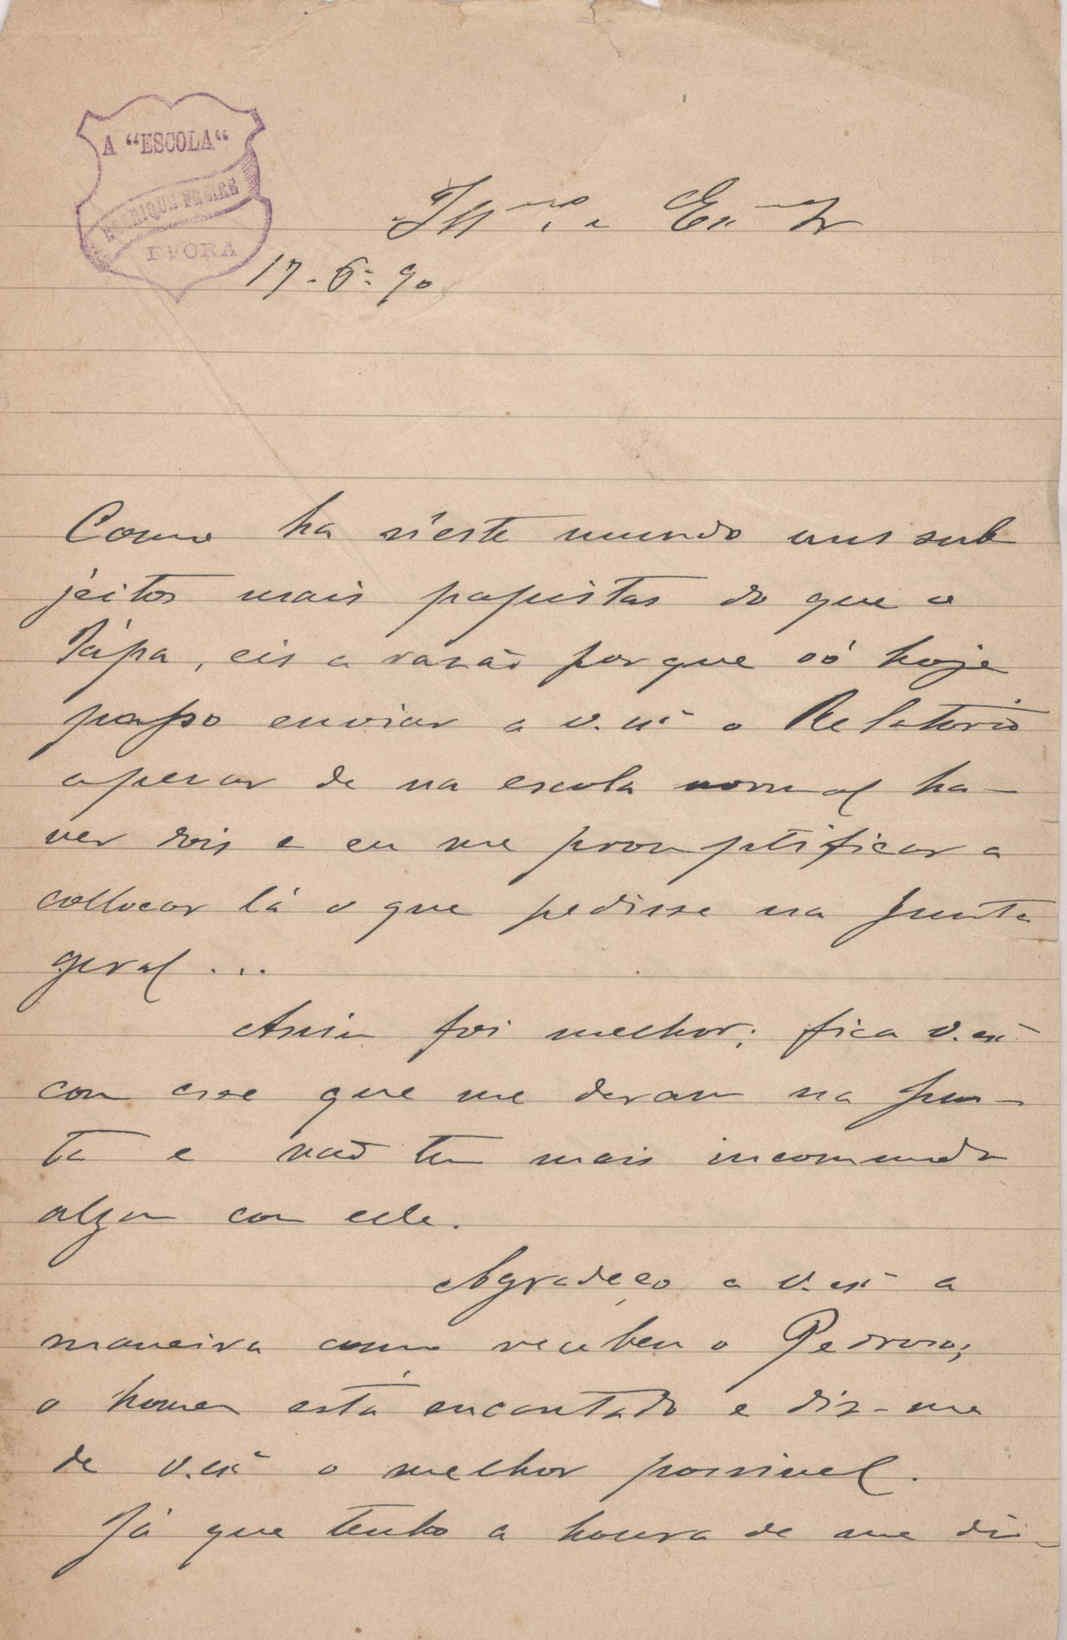 A "ESCOLA"
HENRIQUE FREIRE
EVORA
Ill.mo e Ex.mo Sr
17-6-90
Como ha n'este mundo uns sub
jeitos mais papistas do que o
Pápa, eis a razaõ porque só hoje
posso enviar a v. exª o Relatorio
apezar de na escola normal ha-
ver dois e eu me promptificar a
collocar lá o que pedisse na Junta
geral...
Assim foi melhor; fica v. exª
com esse que me deram na Jun-
ta e naõ tem mais incommodo
algum com elle.
Agradeço a v. exª a
maneira como recebeu o Pedroso;
o homem está encantado e diz-me
de v. exª o melhor possivel.
Já que tenho a honra de me di-